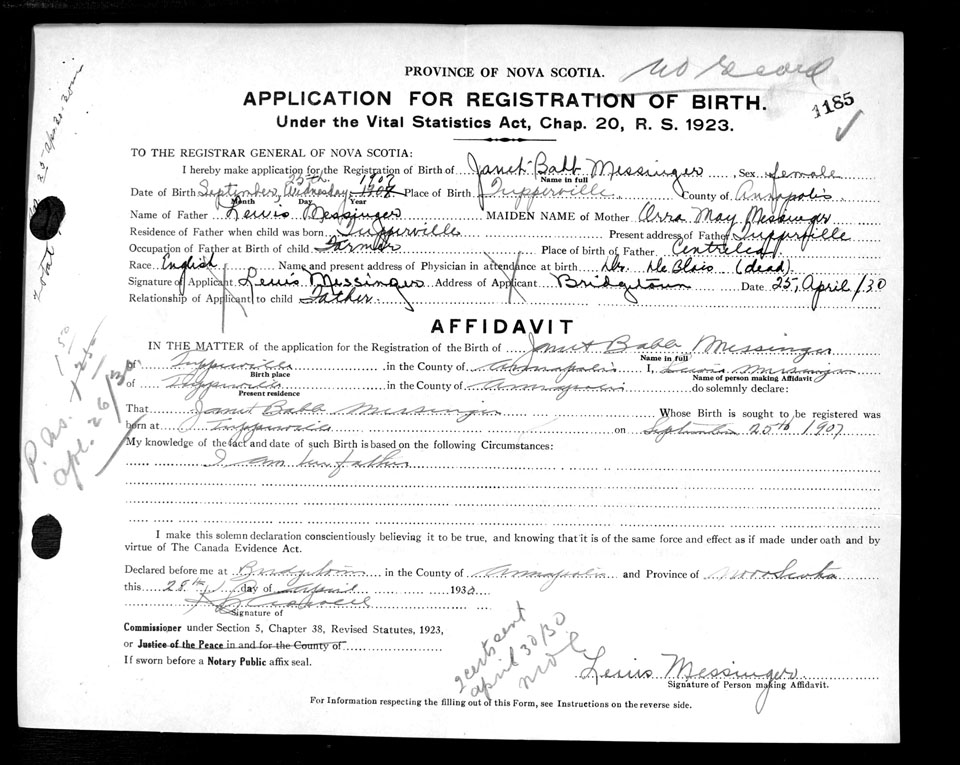 PROVINCE OF NOVA SCOTIA. No Record
APPLICATION FOR REGISTRATION OF BIRTH. 1185
Under the Vital Statistics Act, Chap. 20, R. S. 1923.
TO THE REGISTRAR GENERAL OF NOVA SCOTIA:
I hereby make application for the Registration of Birth of Janet Babb Messinger Sex female
Name in full
Date of Birth September, 25th. Wednesday 1907 Place of Birth Tupperville County of Annapolis
Month Day Year
Name of Father Lewis Messinger MAIDEN NAME of Mother Orra May Messinger
Residence of Father when child was born Tupperville Present address of Father Tupperville
Occupation of Father at Birth of child Farmer Place of birth of Father Centrelea
Race English Name and present address of Physician in attendance at birth Dr. De Blois (dead)
Signature of Applicant Lewis Messinger Address of Applicant Bridgetown Date 25, April/30
Relationship of Applicant to child Father.
AFFIDAVIT
IN THE MATTER of the application for the Registration of the Birth of Janet Babb Messinger
Name in full
of Tupperville in the County of Annapolis I, Lewis Messinger
Birth place Name of person making Affidavit
of Tupperville in the County of Annapolis do solemnly declare:
Present residence
That Janet Babb Messinger Whose Birth is sought to be registered was
born at Tupperville on September 25th 1907
My knowledge of the fact and date of such Birth is based on the following Circumstances:
I am her father
I make this solemn declaration conscientiously believing it to be true, and knowing that it is of the same force and effect as if made under oath and by
virtue of The Canada Evidence Act.
Declared before me at Bridgetown in the County of Annapolis and Province of Nova Scotia
this 28th day of April 1930
Signature of
Commissioner under Section 5, Chapter 38, Revised Statutes, 1923,
or Justice of the Peace in and for the County of
If sworn before a Notary Public affix seal.
Lewis Messinger
Signature of Person making Affidavit.
For Information respecting the filling out of this Form, see Instructions on the reverse side.
2 certs sent
april 30/30
1.50
apl. 26/30